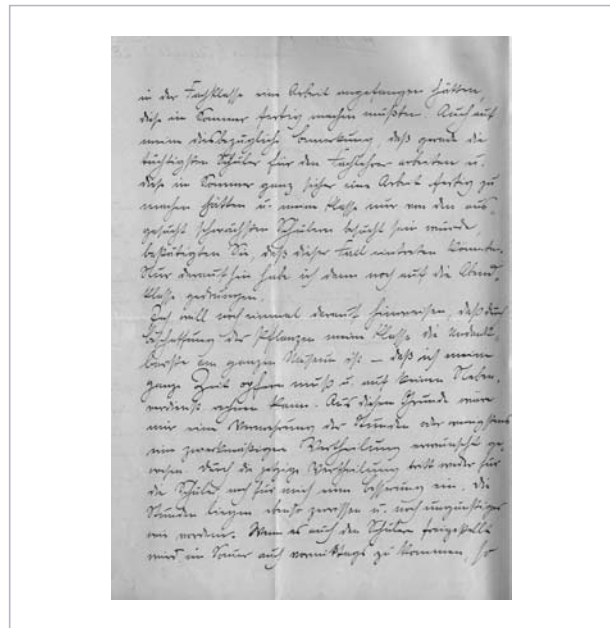 in der Fachklasse eine Arbeit angefangen hätten,
diese im Sommer fertig machen müßten. Auch auf
meine diesbezügliche Bemerkung, daß gerade die
tüchtigsten Schüler für den Fachlehrer arbeiten u.
diese im Sommer ganz sicher eine Arbeit fertig zu
machen hätten u. meine Klasse nur von den aus-
gesucht schwächsten Schülern besucht sein würde,
bestätigten Sie, daß dieser Fall eintreten könnte.
Nur daraufhin habe ich denn noch auf die Abend-
klasse gedrungen.
Ich will noch einmal darauf hinweisen, daß durch
Beschaffung der Pflanzen meine Klasse die Undank-
barste am ganzen Museum ist – daß ich meine
ganze Zeit opfern muß u. auf keinen Neben-
verdienst rechnen kann. Aus diesem Grunde wäre
mir eine Vermehrung der Stunden oder wenigstens
eine zweckmäßigere Vertheilung erwünscht ge-
wesen. Durch die jetzige Vertheilung tritt weder für
die Schüler noch für mich eine Besserung ein. Die
Stunden liegen ebenso zerrissen u. noch ungünstiger
wie vordem. Wenn es auch den Schülern freigestellt
wird im Sommer auch vormittags zu kommen, so